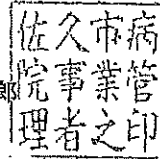 郎
佐久市病
院事業管
理者之印